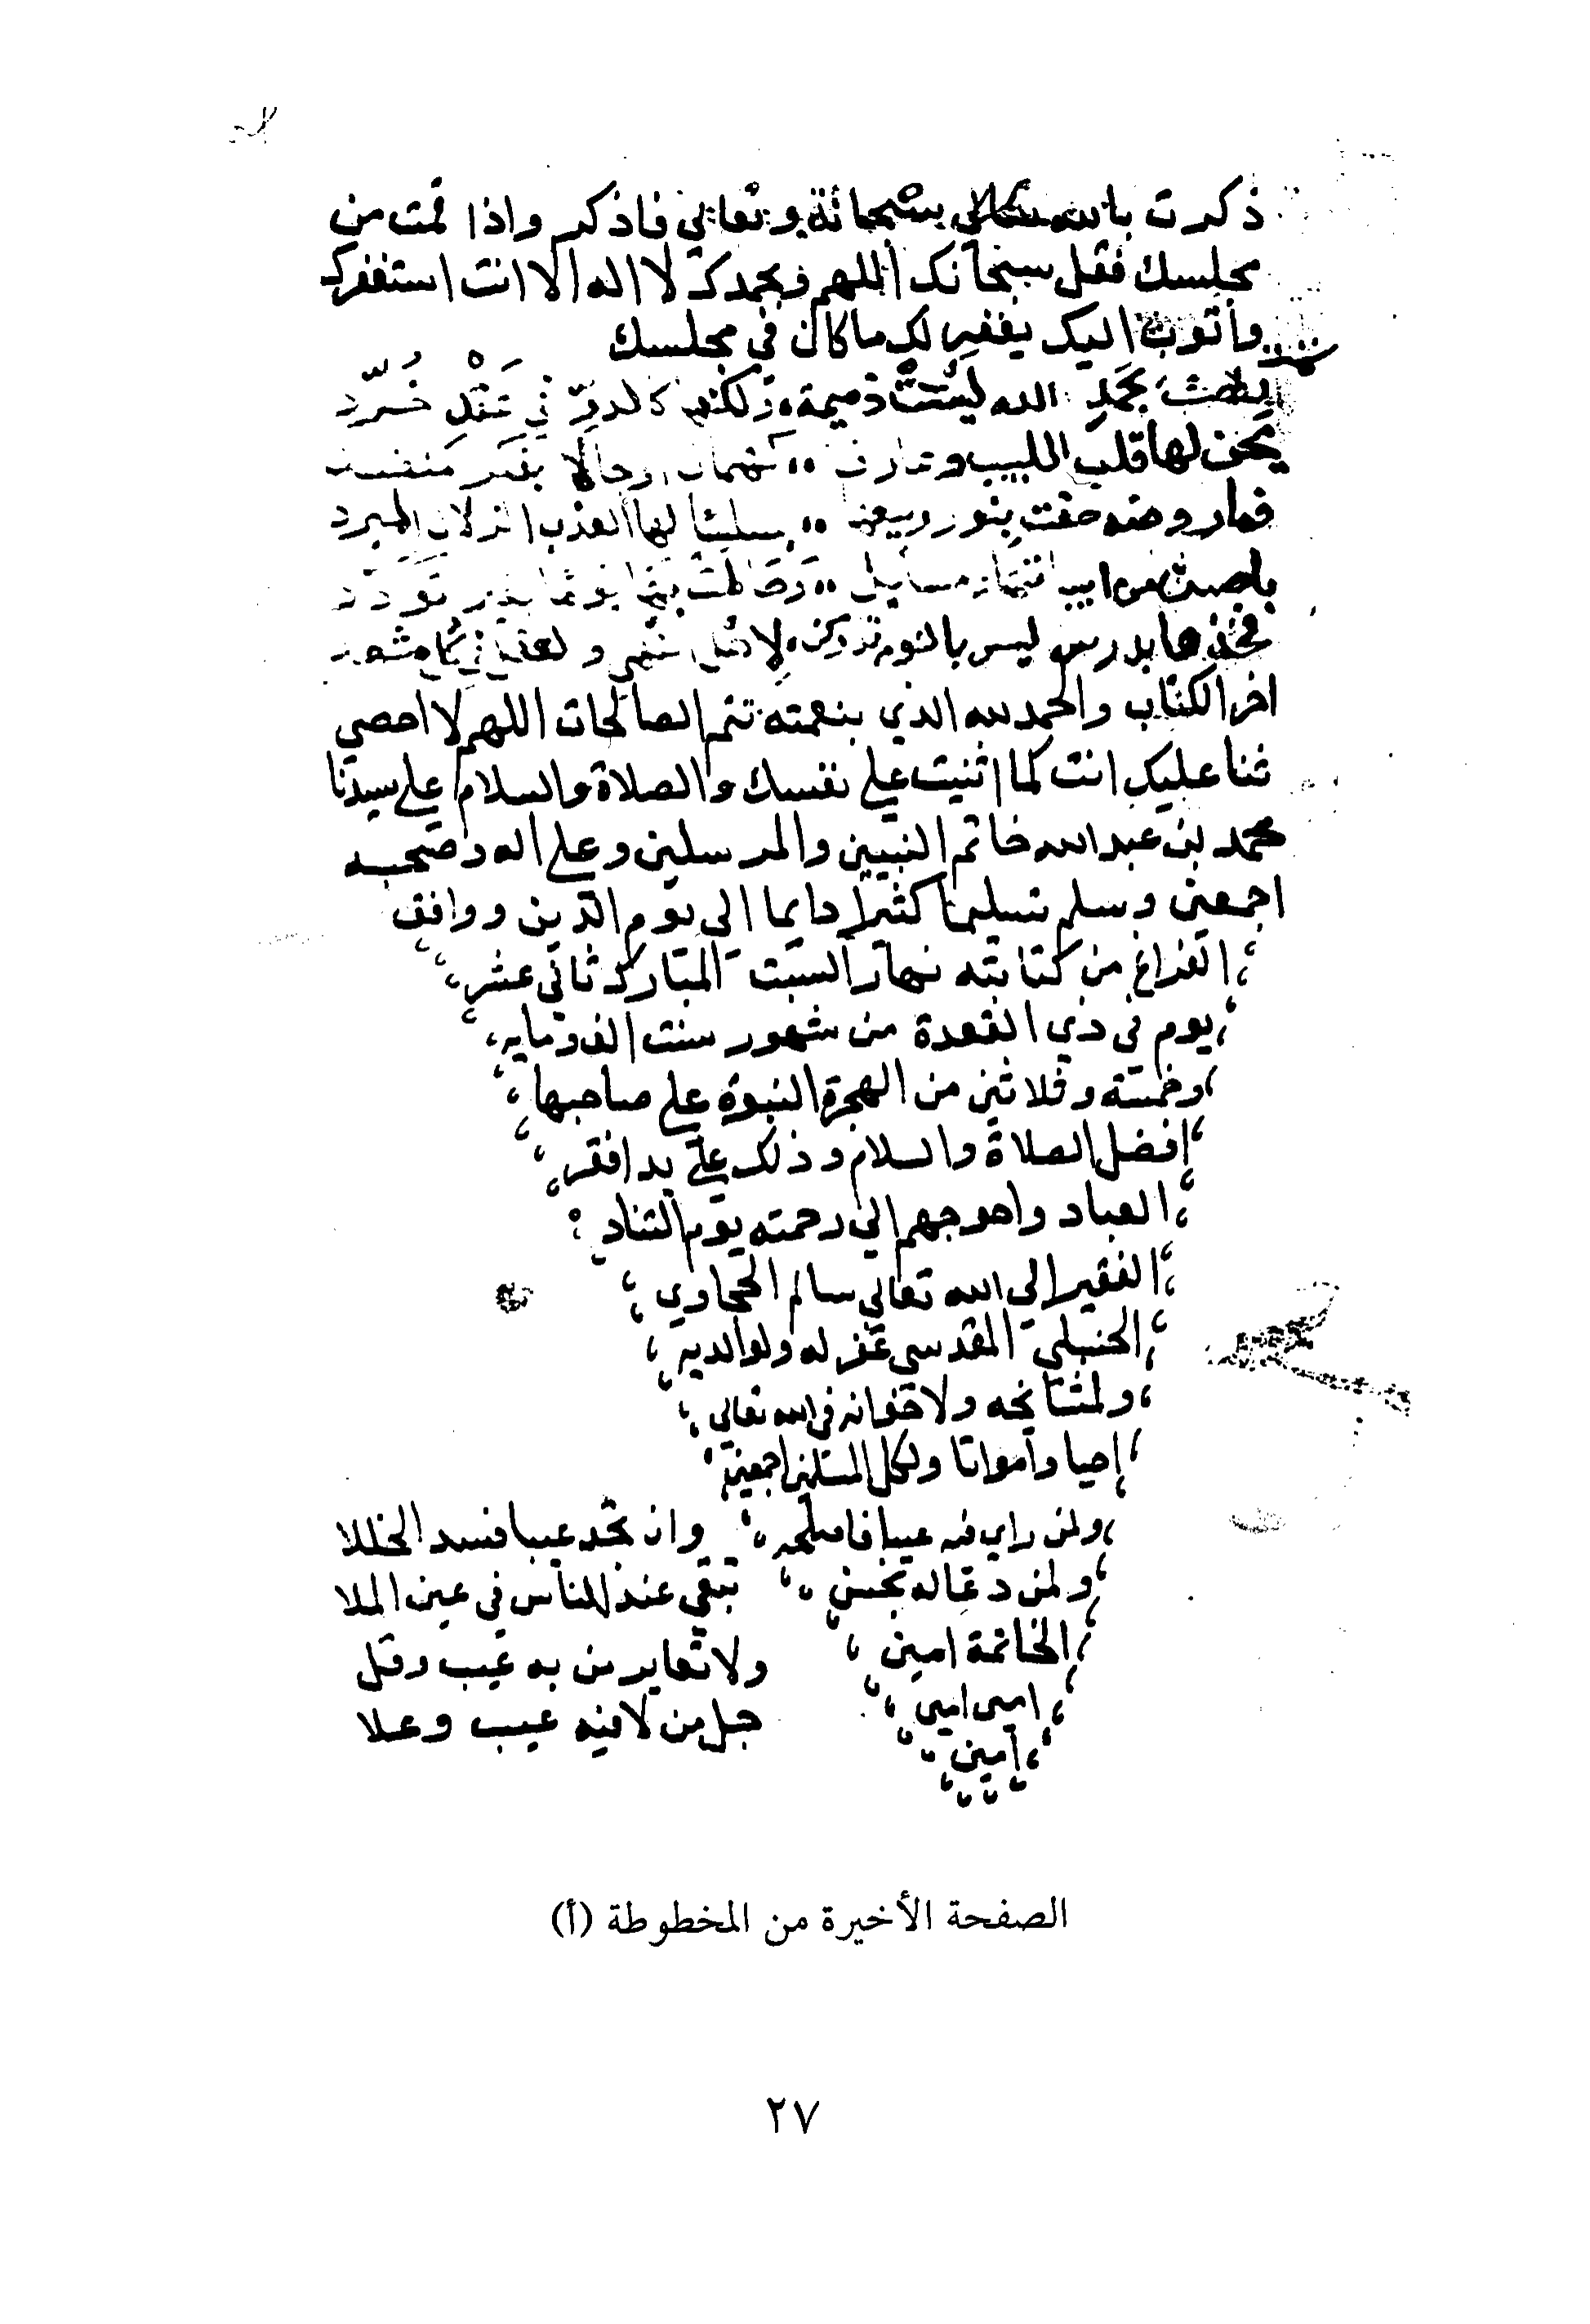 ذكرت بالله سبحانه وتعالي فاذكر واذا قمت من
مجلسك فقل سبحانك اللهم وبحمدك لا اله الا انت استغفرك
واتوب اليك يغفر لك ما كان في مجلسك
بحمد الله ليست ذميمة ولكنها كالدر في خرد
يحن لها قلب اللبيب وعارف
فما روضة حفت بنور ربيعها العذب الزلال المبرد
فخذها بدرس ليس بالنوم تدركن لاهل
اخر الكتاب والحمد لله الذي بنعمته تتم الصالحات اللهم لا احصي
ثنا عليك انت كما اثنيت علي نفسك والصلاة والسلام علي سيدنا
محمد بن عبد الله خاتم النبيين والمرسلين وعلي اله وصحبه
اجمعين وسلم تسليما كثيرا دايما الي يوم الدين ووافق
الفراغ من كتابته نهار السبت المبارك ثاني عشر
يوم في ذي القعدة من شهور سنت الف ومايه
وخمسة وثلاثين من الهجرة النبوة علي صاحبها
افضل الصلاة والسلام وذلك علي يد افقر
العباد واحوجهم الي رحمته يوم التناد
الفقير الي الله تعالي سالم الحجاوي
الحنبلي المقدسي غفر له ولوالديه
ولمشايخه ولاخوانه في الله تعالي
احيا وامواتا ولكل المسلمين اجمعين
ولمن راي فيه عيبا فاصلحه
ولمن دعا له بحسن
الخاتمة امين
امين امين
امين
وان تجد عيبا فسد الخللا
تبقي عند الناس في عين الملا
ولا تعاير من به عيب وقل
جل من لا فيه عيب وعلا
الصفحة الأخيرة من المخطوطة (أ)
٢٧